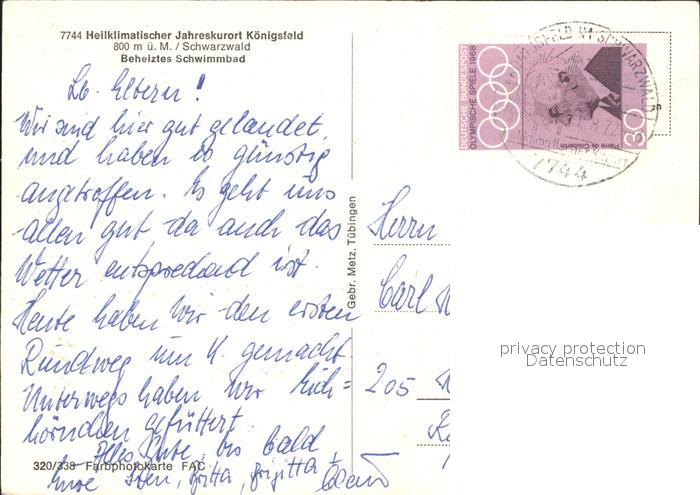 7744 Heilklimatischer Jahreskurort Königsfeld
800 m ü. M. / Schwarzwald
Beheiztes Schwimmbad
Lb. Eltern!
Wir sind hier gut gelandet
und haben es günstig
angetroffen. Es geht uns
allen gut da auch das
Wetter entsprechend ist.
Heute haben wir den ersten
Rundweg um K. gemacht.
Unterwegs haben wir Eich=
hörnchen gefüttert
Alles Gute, bis bald
Eure Sven, Britta, Brigitta +
320/338 Farbphotokarte FAC
Gebr. Metz, Tübingen
DEUTSCHE BUNDESPOST
OLYMPISCHE SPIELE 1968
Pierre de Coubertin
30
SCHWARZWALD
7744
Herrn
Carl
205
privacy protection
Datenschutz